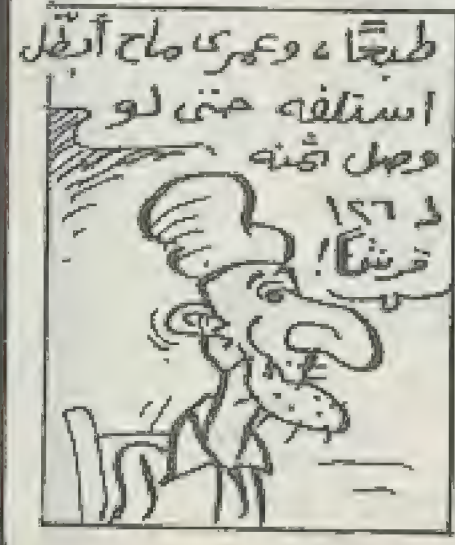 طبعًا، وعمرى ماح أبطّل
استلفه حتى لو
وصل ثمنه
لـ ١٢٦
قرشًا!